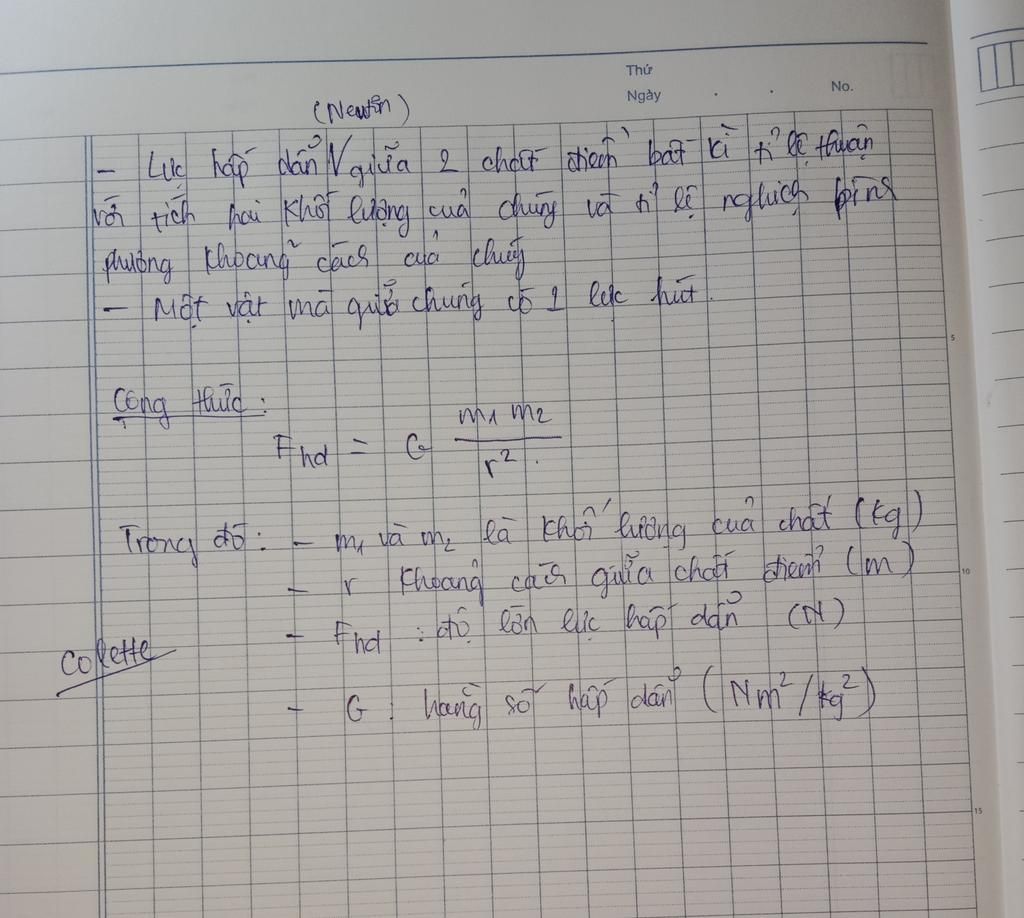 Thứ
Ngày . . No.
(Newtơn)
- Lực hấp dẩn V giữa 2 chất điểm bất kì tỉ lệ thuận
với tích hai khối lượng cuả chúng và tỉ lệ nghịch bình
phương khoảng cách của chúng
- Một vật mà giữa chúng có 1 lực hút.
5
Công thức:
Fhd = G m₁ m₂ / r² .
Trong đó: - m₁ và m₂ là khối lượng cuả chất (kg)
- r khoảng cách giữa chất điểm (m)
10
- Fhd : độ lớn lực hấp dẩn (N)
Colette
- G : hằng số hấp dẩn (Nm²/kg²)
15